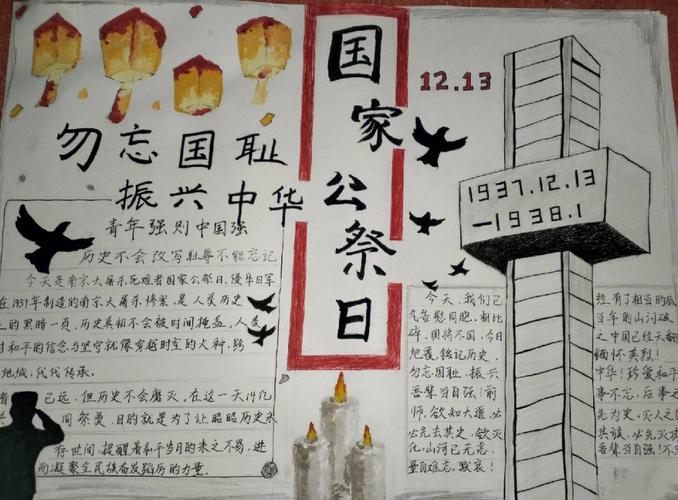 国家公祭日
12.13
勿忘国耻
振兴中华
1937.12.13
-1938.1
青年强则中国强
历史不会改写耻辱不能忘记
今天是南京大屠杀死难者国家公祭日,侵华日军
在1937年制造的南京大屠杀惨案,是人类历史
上的黑暗一页,历史真相不会被时间掩盖,人类
对和平的信念与坚守就像穿越时空的火种,跨
地域,代代传承。
已远,但历史不会磨灭,在这一天
周祭奠,目的就是为了让昭昭历史永
存世间,提醒着和平当日的来之不易,进
而凝聚全民族奋发蹈厉的力量。
今天,我们已
经有了相当的底
气告慰同胞,相比
当年的山河破
碎,国将不国,今日
之中国已经天翻
地覆,铭记历史,
缅怀英烈!
勿忘国耻,振兴
中华!珍爱和平
吾辈当自强!前
事不忘,后事之
师,欲知大道,必
先为史,灭人之
必先去其史,欲灭
其族,必先灭其
化,山河已无恙,
吾辈当自强!
重自难忘,默哀!